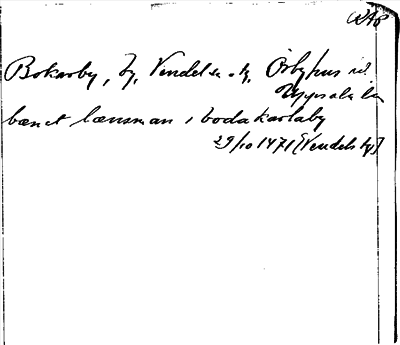 RAp
Bokarby, by, Vendels sn, Örbyhus hd.
Uppsala län
bænct lænsman i bodakarlaby
29/10 1471 (Vendels ky)